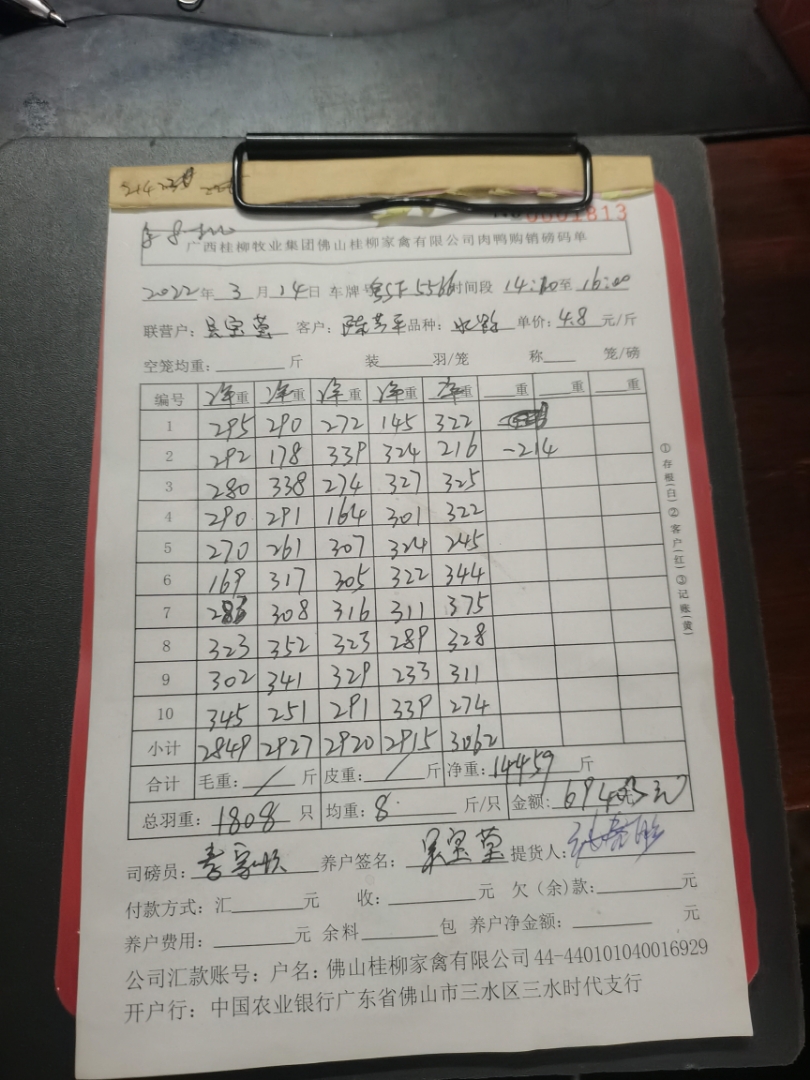 0001813
广西桂柳牧业集团佛山桂柳家禽有限公司肉鸭购销磅码单
2022年3月14日 车牌号 5566 时间段 14: 至 16:00
联营户：吴宝莹 客户： 品种： 单价：4.8元/斤
空笼均重： 斤 装 羽/笼 称 笼/磅
编号 净重 净重 净重 净重 净重 重 重 重
1 295 290 272 145 322
2 292 178 339 324 216 -214
3 280 338 274 327 325
4 290 291 164 301 322
5 270 261 307 324 245
6 169 317 305 322 344
7 283 308 316 311 375
8 323 352 323 289 328
9 302 341 329 233 311
10 345 251 291 339 274
小计 2849 2927 2920 2915 3062
合计 毛重：/斤 皮重：/斤 净重：14459斤
总羽重：1808只 均重：8斤/只 金额：69403元
司磅员：李 养户签名：吴宝莹 提货人：
付款方式：汇 元 收： 元 欠（余）款： 元
养户费用： 元 余料 包 养户净金额： 元
公司汇款账号：户名：佛山桂柳家禽有限公司 44-440101040016929
开户行：中国农业银行广东省佛山市三水区三水时代支行
①存根(白)②客户(红)③记账(黄)